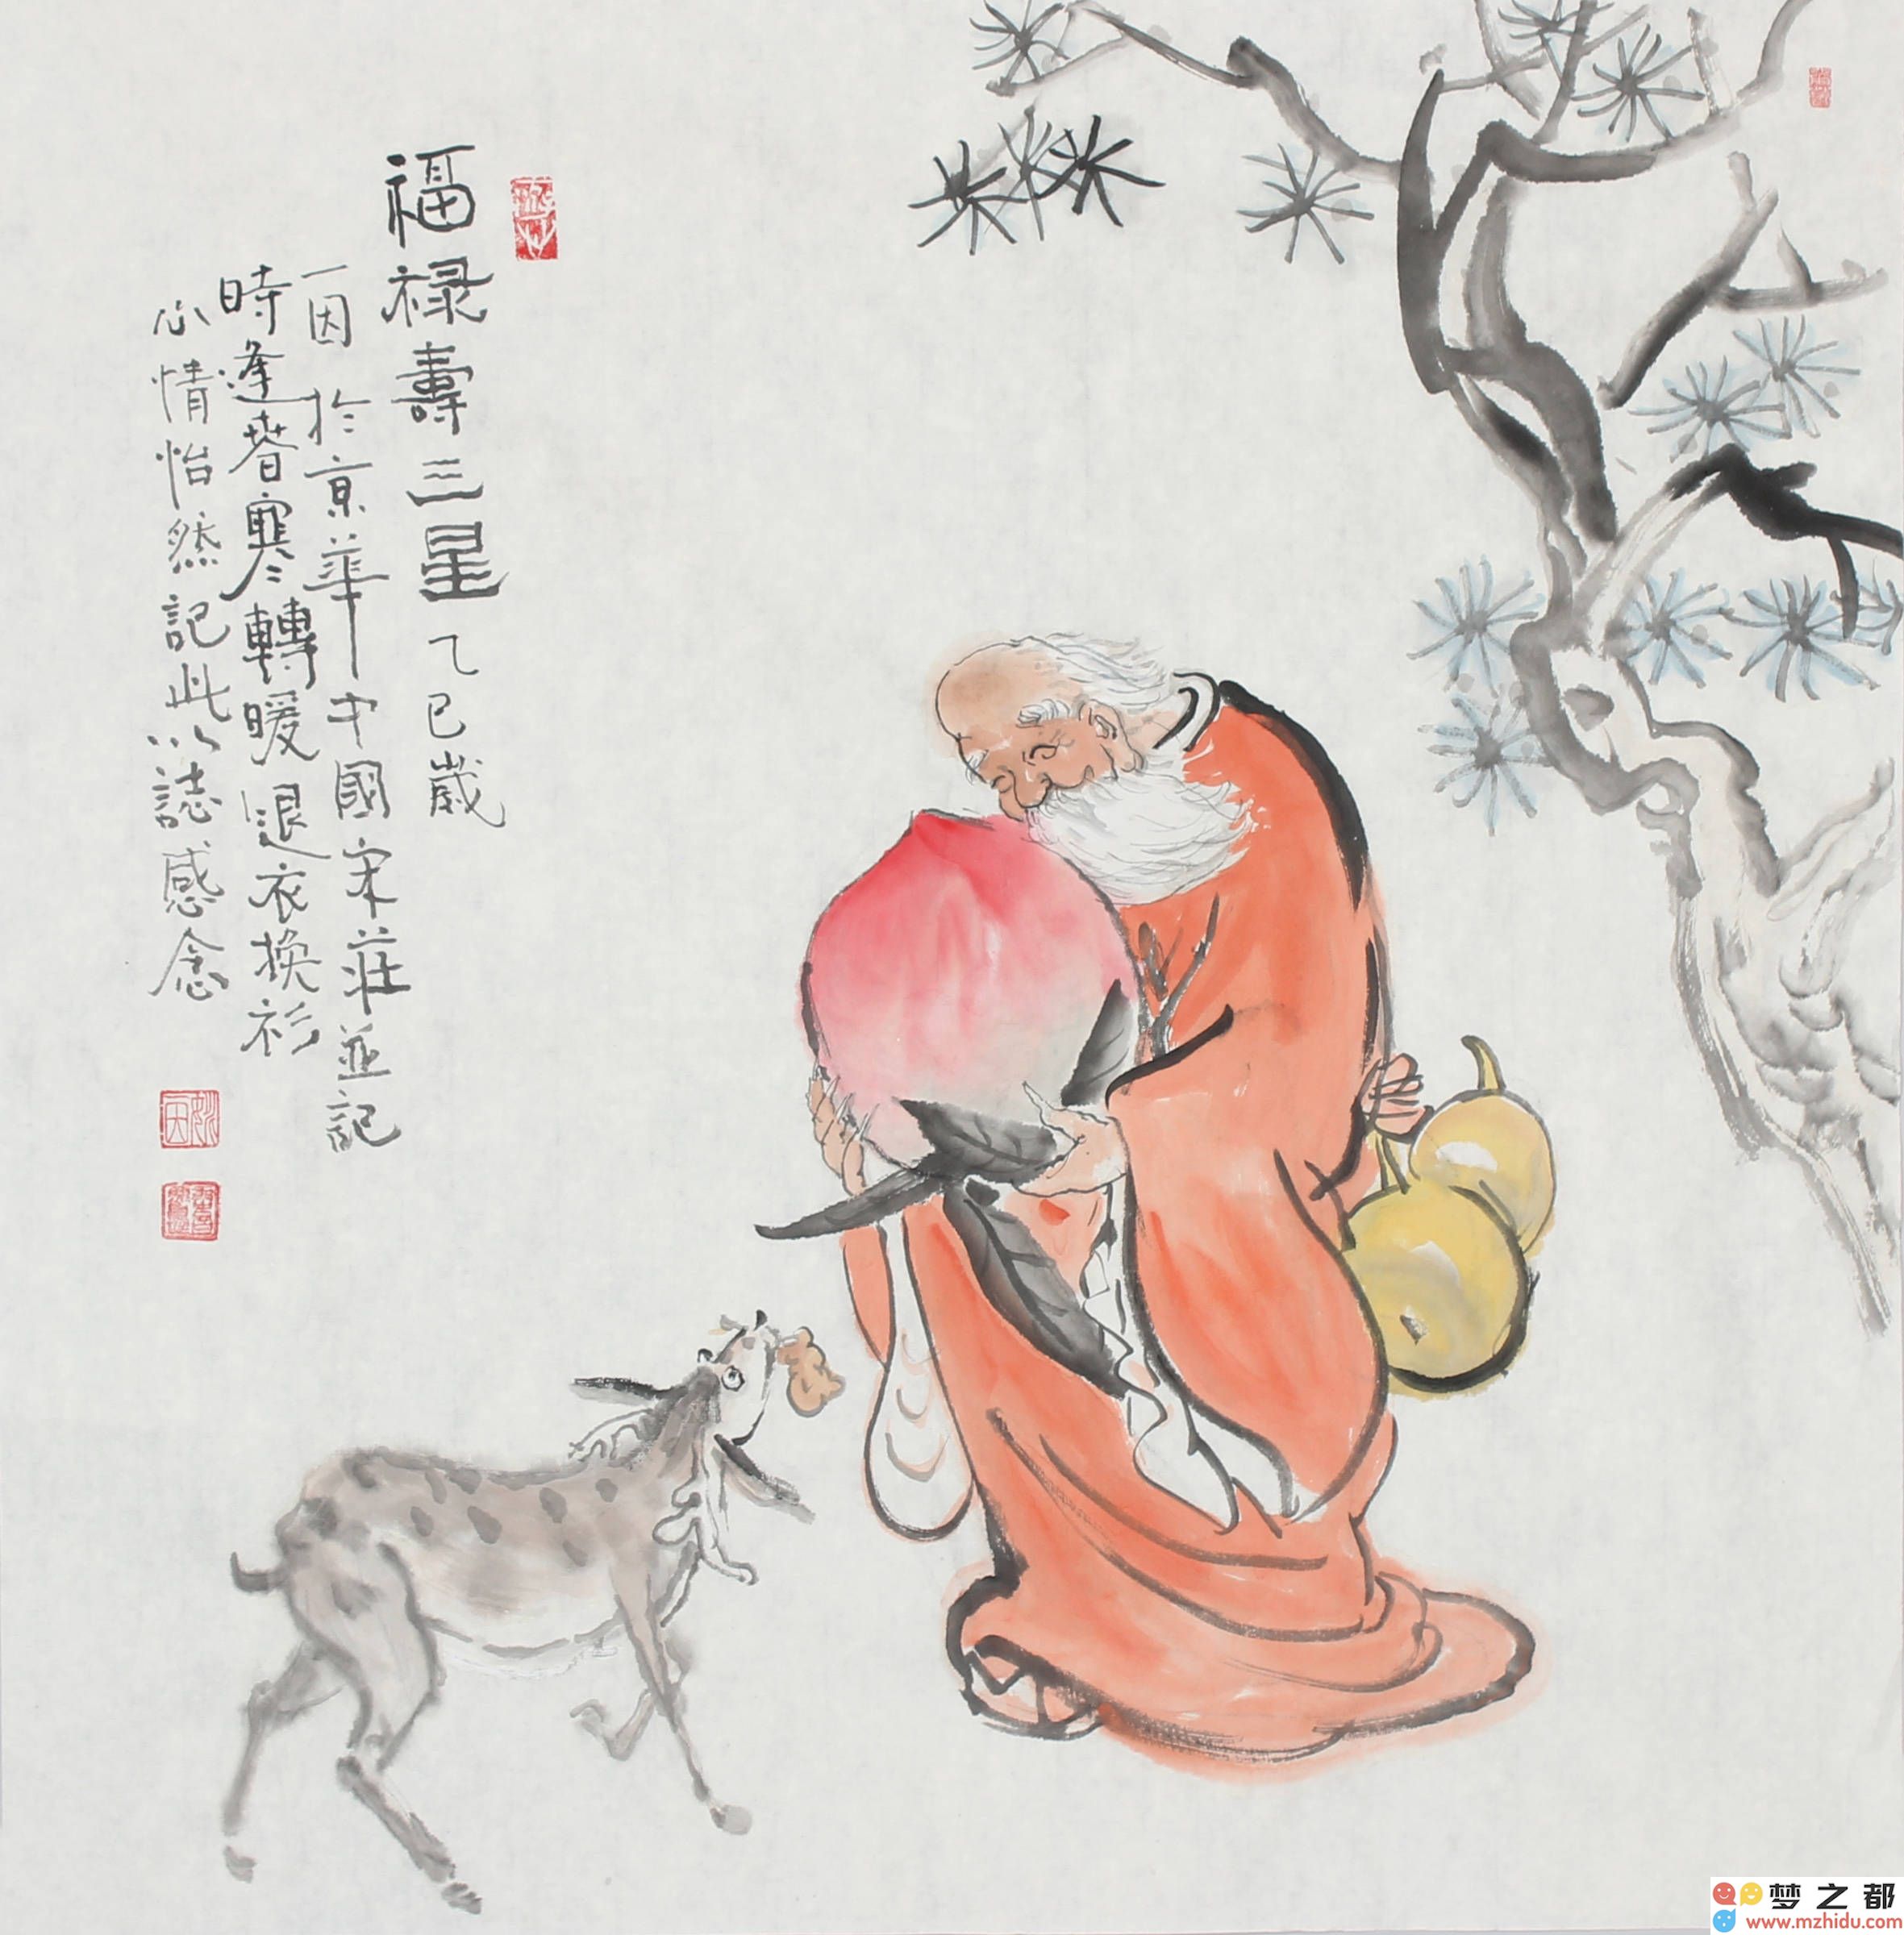 福禄壽三星 乙巳歲
一因 於京華中國宋莊並記
時逢春寒轉暖退衣換衫
心情怡然記此以誌感念
梦之都
www.mzhidu.com